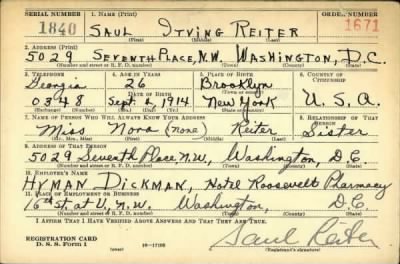 SERIAL NUMBER 1. NAME (Print) ORDER NUMBER
1840 SAUL IRVING REITER 1671
(First) (Middle) (Last)
2. ADDRESS (Print)
5029 SEVENTH PLACE, N.W. WASHINGTON, D.C.
(Number and street or R. F. D. number) (Town) (County) (State)
3. TELEPHONE 4. AGE IN YEARS 5. PLACE OF BIRTH 6. COUNTRY OF CITIZENSHIP
Georgia 26 Brooklyn
DATE OF BIRTH (Town or county)
0348 Sept. 6, 1914 New York U.S.A.
(Exchange) (Number) (Mo.) (Day) (Yr.) (State or country)
7. NAME OF PERSON WHO WILL ALWAYS KNOW YOUR ADDRESS 8. RELATIONSHIP OF THAT PERSON
Miss Nora (none) Reiter Sister
(Mr., Mrs., Miss) (First) (Middle) (Last)
9. ADDRESS OF THAT PERSON
5029 Seventh Place, N.W., Washington, D.C.
(Number and street or R. F. D. number) (Town) (County) (State)
10. EMPLOYER'S NAME
HYMAN DICKMAN, Hotel Roosevelt Pharmacy
11. PLACE OF EMPLOYMENT OR BUSINESS
16th St. at U, N.W. Washington, D.C.
(Number and street or R. F. D. number) (Town) (County) (State)
I AFFIRM THAT I HAVE VERIFIED ABOVE ANSWERS AND THAT THEY ARE TRUE.
REGISTRATION CARD
D. S. S. Form 1 (over) 16-17105 Saul Reiter
(Registrant's signature)